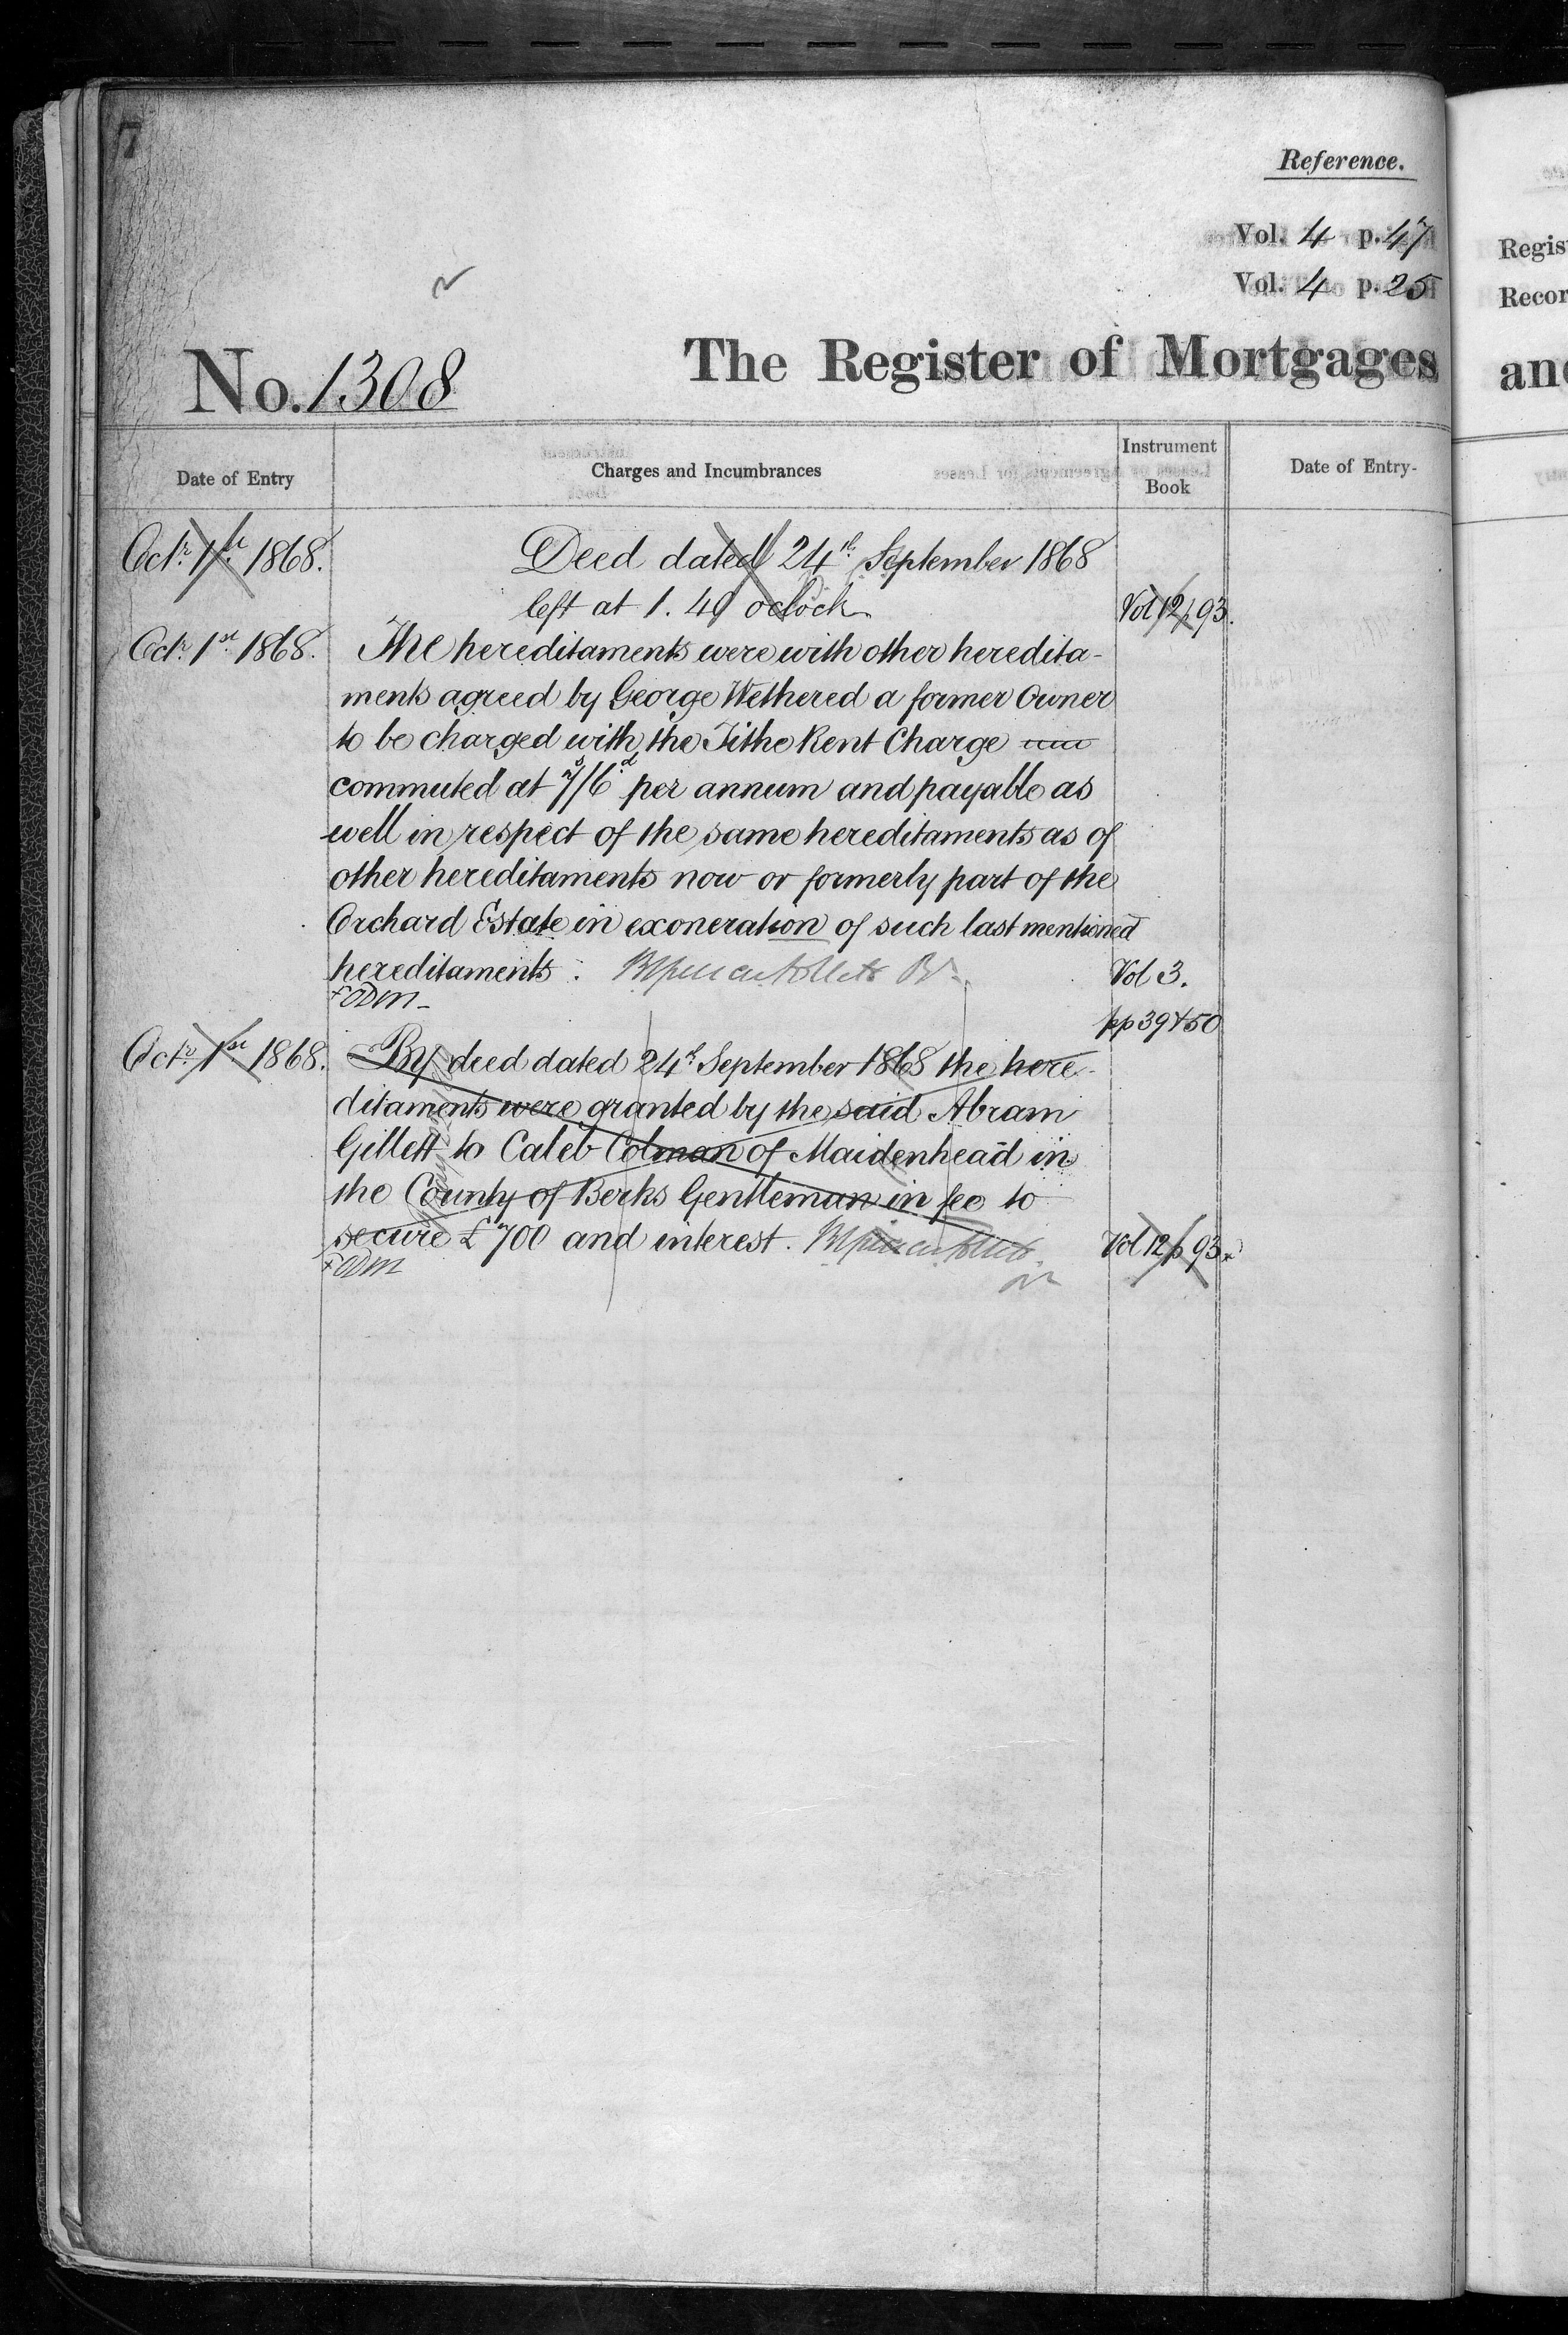 7
Reference.
Vol. 4 p. 47
Vol. 4 p. 25
No. 1308
The Register of Mortgages
Date of Entry
Charges and Incumbrances
Instrument
Book
Date of Entry
Octr. 1st 1868.
Deed dated 24th September 1868
left at 1.40 oclock
Vol 12 p 93.
Octr. 1st 1868.
The hereditaments were with other heredita-
ments agreed by George Wethered a former Owner
to be charged with the Tithe Rent Charge
commuted at 7s/6d per annum and payable as
well in respect of the same hereditaments as of
other hereditaments now or formerly part of the
Orchard Estate in exoneration of such last mentioned
hereditaments.
Vol 3.
pp 39 & 50
Octr. 1st 1868.
By deed dated 24th September 1868 the here-
ditaments were granted by the said Abram
Gillett to Caleb Colman of Maidenhead in
the County of Berks Gentleman in fee to
secure £700 and interest.
Vol 12 p 93.
Regis
Recor
an